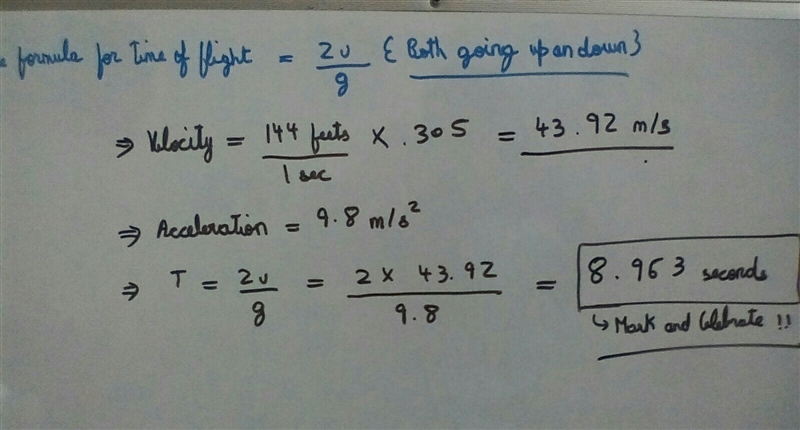 formula for Time of flight = 2u/g { Both going up an down }
⇒ Velocity = 144 feets/1 sec × .305 = 43.92 m/s
⇒ Acceleration = 9.8 m/s²
⇒ T = 2u/g = 2 × 43.92/9.8 = 8.963 seconds
↳ Mark and Celebrate !!